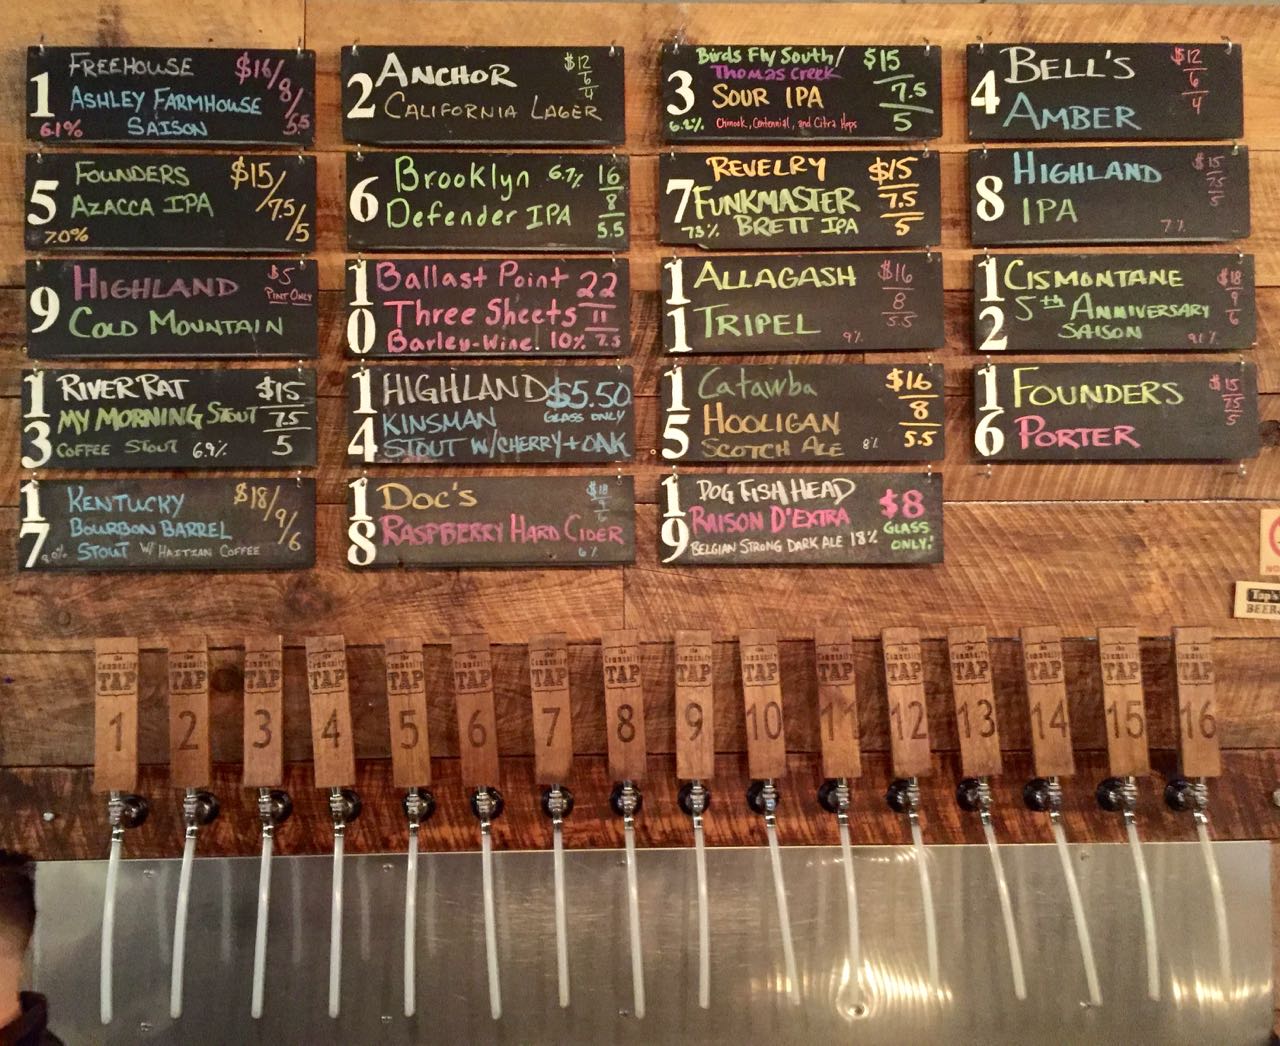 1
FREEHOUSE
ASHLEY FARMHOUSE
SAISON
6.1%
$16/8/5.5
2
ANCHOR
CALIFORNIA LAGER
$12
6
4
3
Birds Fly South/
Thomas Creek
SOUR IPA
6.2%
Chinook, Centennial, and Citra Hops
$15
7.5
5
4
BELL'S
AMBER
$12
6
4
5
FOUNDERS
AZACCA IPA
7.0%
$15/7.5/5
6
Brooklyn 6.7%
Defender IPA
16
8
5.5
7
REVELRY
FUNKMASTER
7.3% BRETT IPA
$15
7.5
5
8
HIGHLAND
IPA
7%
$15
7.5
5
9
HIGHLAND
COLD MOUNTAIN
$5
PINT ONLY
10
Ballast Point
Three Sheets
Barley-Wine! 10%
22
11
7.5
11
ALLAGASH
TRIPEL
9%
$16
8
5.5
12
CISMONTANE
5th ANNIVERSARY
SAISON
$18
9
6
13
RIVER RAT
MY MORNING STOUT
COFFEE STOUT 6.9%
$15
7.5
5
14
HIGHLAND
KINSMAN
STOUT W/CHERRY + OAK
$5.50
GLASS ONLY
15
Catawba
HOOLIGAN
SCOTCH ALE 8%
$16
8
5.5
16
FOUNDERS
PORTER
$15
7.5
5
17
KENTUCKY
BOURBON BARREL
STOUT W/ HAITIAN COFFEE
$18/9/6
18
DOC'S
RASPBERRY HARD CIDER
6%
$18
9
6
19
DOG FISH HEAD
RAISON D'EXTRA
BELGIAN STRONG DARK ALE 18%
$8
GLASS
ONLY!
Tap's
BEER
the Community TAP 1
the Community TAP 2
the Community TAP 3
the Community TAP 4
the Community TAP 5
the Community TAP 6
the Community TAP 7
the Community TAP 8
the Community TAP 9
the Community TAP 10
the Community TAP 11
the Community TAP 12
the Community TAP 13
the Community TAP 14
the Community TAP 15
the Community TAP 16